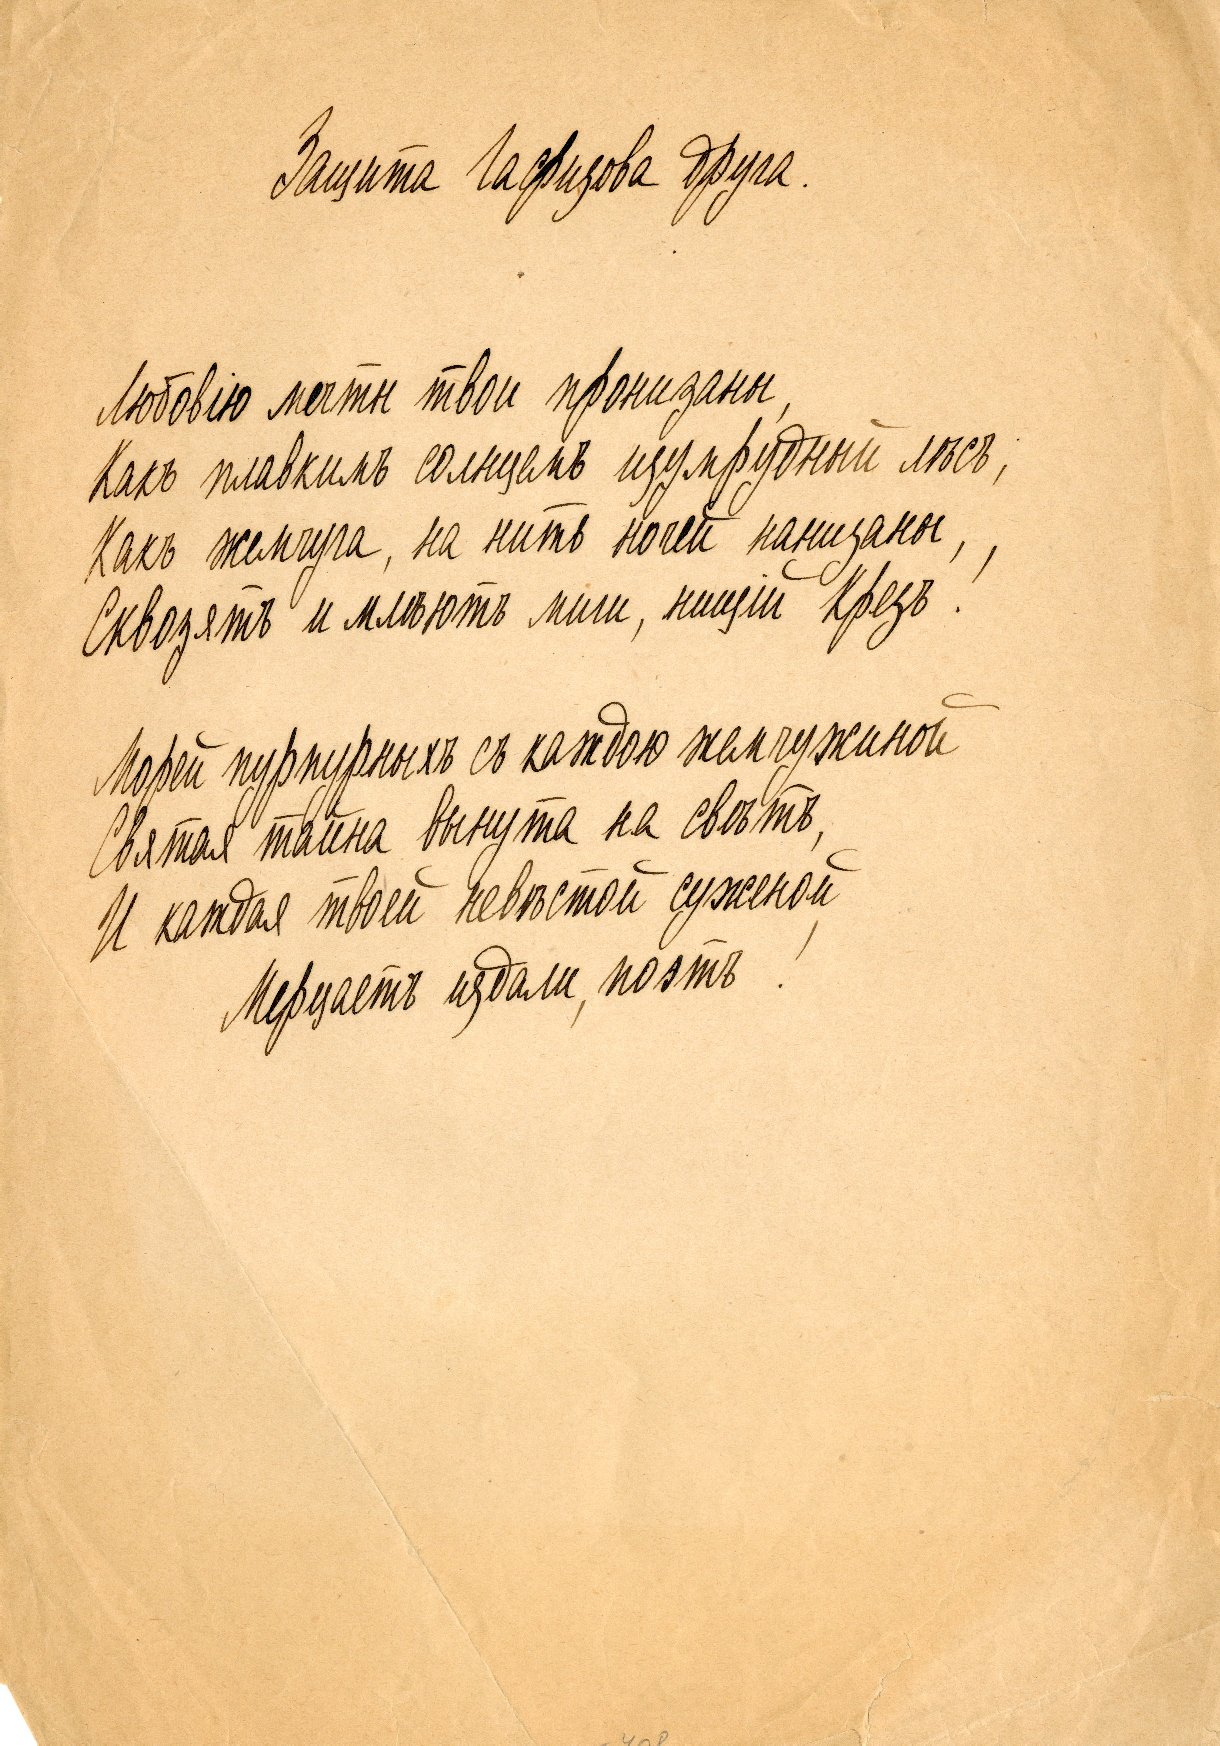 Защита Гафизова друга.
Любовію мечты твои пронизаны,
Какъ плавкимъ солнцемъ изумрудный лѣсъ;
Какъ жемчуга, на нить ночей нанизаны,
Сквозятъ и млѣютъ миги, нищій Крезъ!
Морей пурпурныхъ съ каждою жемчужиной
Святая тайна вынута на свѣтъ,
И каждая твоей невѣстой суженой
Мерцаетъ издали, поэтъ!